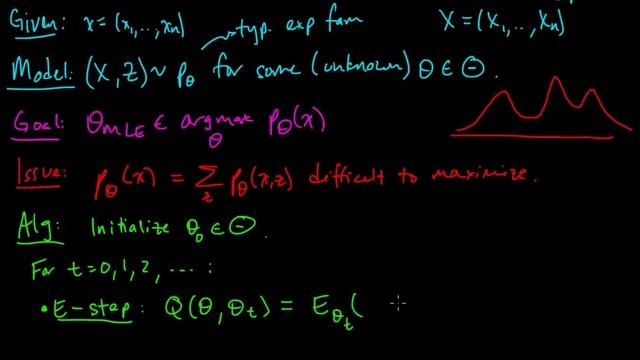 Given: x = (x₁, ..., xₙ) X = (X₁, ..., Xₙ)
typ. exp fam
Model: (X, Z) ~ p_θ for some (unknown) θ ∈ Θ.
Goal: θ_MLE ∈ argmax_θ p_θ(x)
Issue: p_θ(x) = Σ_z p_θ(x, z) difficult to maximize.
Alg: Initialize θ₀ ∈ Θ.
For t = 0, 1, 2, ....:
• E-step: Q(θ, θ_t) = E_θ_t (